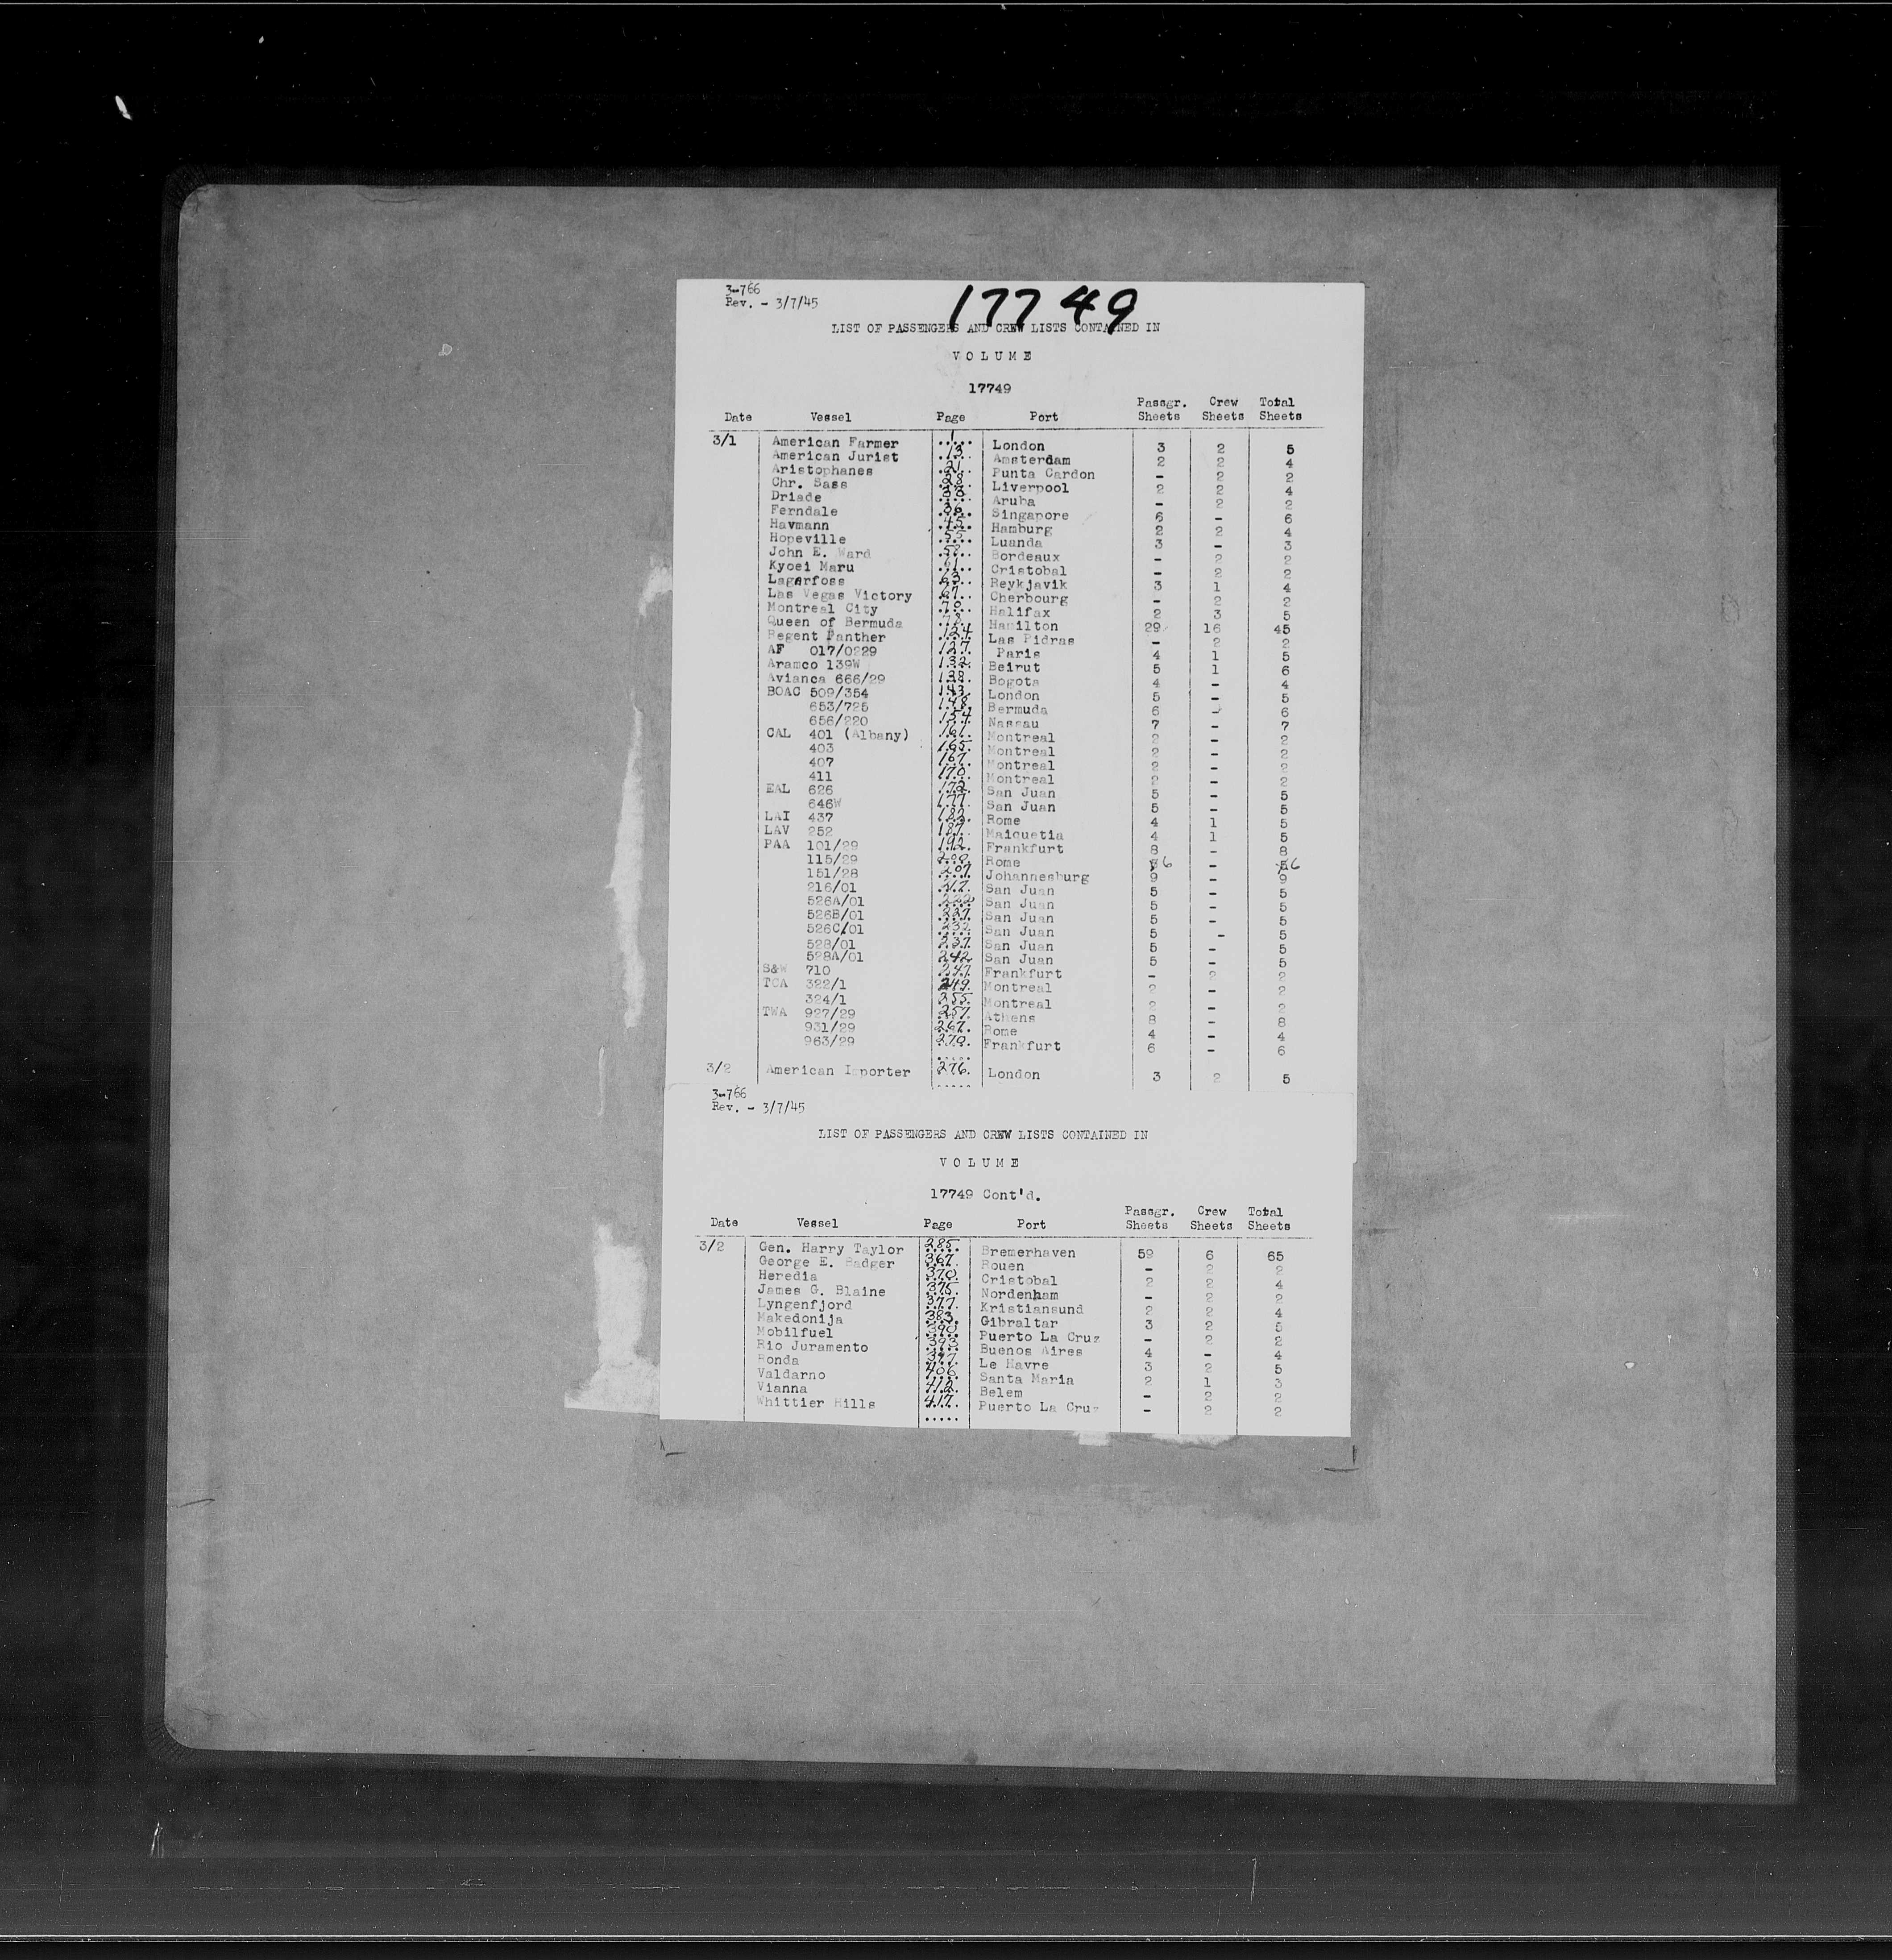 3-766
Rev. - 3/7/45
17749
LIST OF PASSENGERS AND CREW LISTS CONTAINED IN
VOLUME
17749
Date Vessel Page Port Passgr. Sheets Crew Sheets Total Sheets
3/1 American Farmer 1 London 3 2 5
American Jurist 13 Amsterdam 2 2 4
Aristophanes 21 Punta Cardon - 2 2
Chr. Sass 28 Liverpool 2 2 4
Driade Aruba - 2 2
Ferndale 36 Singapore 6 - 6
Havmann 45 Hamburg 2 2 4
Hopeville 55 Luanda 3 - 3
John E. Ward 58 Bordeaux - 2 2
Kyoei Maru 61 Cristobal - 2 2
Lagarfoss 63 Reykjavik 3 1 4
Las Vegas Victory 67 Cherbourg - 2 2
Montreal City 70 Halifax 2 3 5
Queen of Bermuda 78 Hamilton 29 16 45
Regent Panther 124 Las Pidras - 2 2
AF 017/0229 127 Paris 4 1 5
Aramco 139W 132 Beirut 5 1 6
Avianca 666/29 138 Bogota 4 - 4
BOAC 509/354 143 London 5 - 5
653/725 148 Bermuda 6 - 6
656/220 154 Nassau 7 - 7
CAL 401 (Albany) 161 Montreal 2 - 2
403 165 Montreal 2 - 2
407 167 Montreal 2 - 2
411 170 Montreal 2 - 2
EAL 626 172 San Juan 5 - 5
646W 177 San Juan 5 - 5
LAI 437 182 Rome 4 1 5
LAV 252 187 Maiquetia 4 1 5
PAA 101/29 192 Frankfurt 8 - 8
115/29 200 Rome 6 - 6
151/28 207 Johannesburg 9 - 9
216/01 217 San Juan 5 - 5
526A/01 222 San Juan 5 - 5
526B/01 227 San Juan 5 - 5
526C/01 232 San Juan 5 - 5
528/01 237 San Juan 5 - 5
528A/01 242 San Juan 5 - 5
S&W 710 247 Frankfurt - 2 2
TCA 322/1 249 Montreal 2 - 2
324/1 255 Montreal 2 - 2
TWA 927/29 257 Athens 8 - 8
931/29 267 Rome 4 - 4
963/29 270 Frankfurt 6 - 6
3/2 American Importer 276 London 3 2 5
3-766
Rev. - 3/7/45
LIST OF PASSENGERS AND CREW LISTS CONTAINED IN
VOLUME
17749 Cont'd.
Date Vessel Page Port Passgr. Sheets Crew Sheets Total Sheets
3/2 Gen. Harry Taylor 285 Bremerhaven 59 6 65
George E. Badger 367 Rouen - 2 2
Heredia 370 Cristobal 2 2 4
James G. Blaine 375 Nordenham - 2 2
Lyngenfjord 377 Kristiansund 2 2 4
Makedonija 383 Gibraltar 3 2 5
Mobilfuel 390 Puerto La Cruz - 2 2
Rio Juramento 393 Buenos Aires 4 - 4
Ronda 397 Le Havre 3 2 5
Valdarno 406 Santa Maria 2 1 3
Vianna 412 Belem - 2 2
Whittier Hills 417 Puerto La Cruz - 2 2